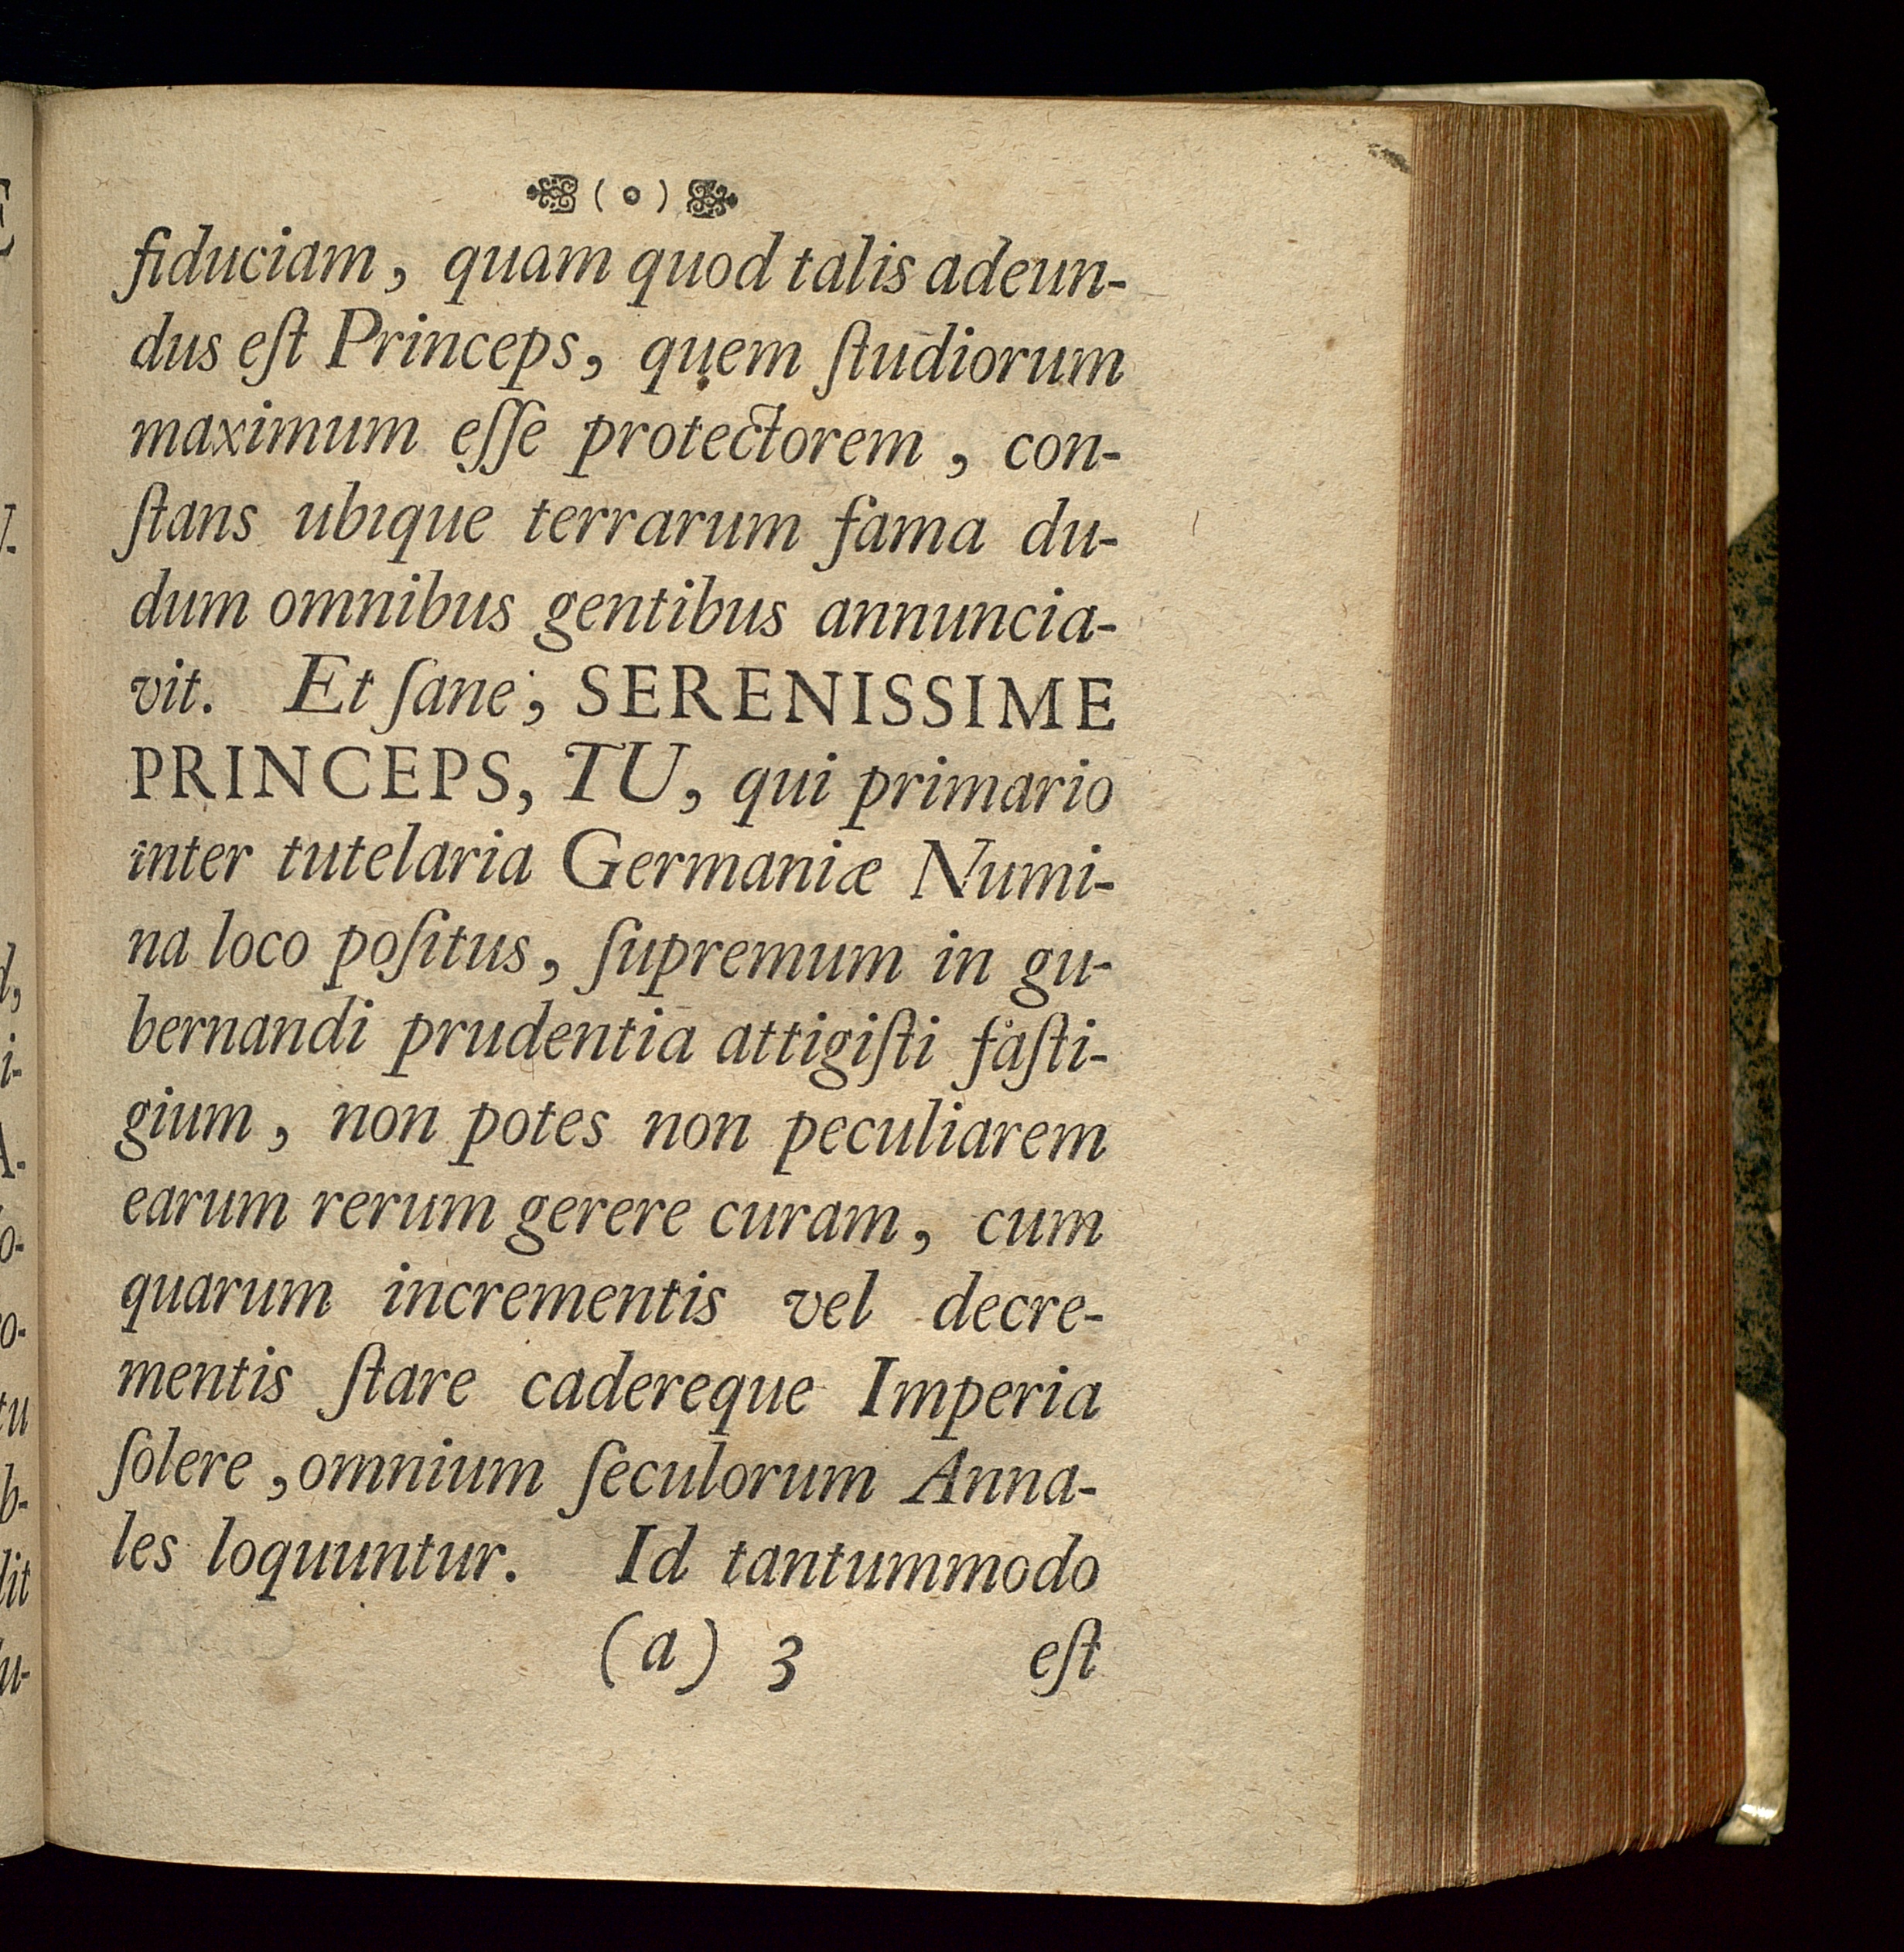 (o)
fiduciam, quam quod talis adeun-
dus eſt Princeps, quem ſtudiorum
maximum eſſe protectorem, con-
ſtans ubique terrarum fama du-
dum omnibus gentibus annuncia-
vit. Et ſane, SERENISSIME
PRINCEPS, TU, qui primario
inter tutelaria Germaniæ Numi-
na loco poſitus, ſupremum in gu-
bernandi prudentia attigiſti faſti-
gium, non potes non peculiarem
earum rerum gerere curam, cum
quarum incrementis vel decre-
mentis ſtare cadereque Imperia
ſolere, omnium ſeculorum Anna-
les loquuntur. Id tantummodo
(a) 3 eſt